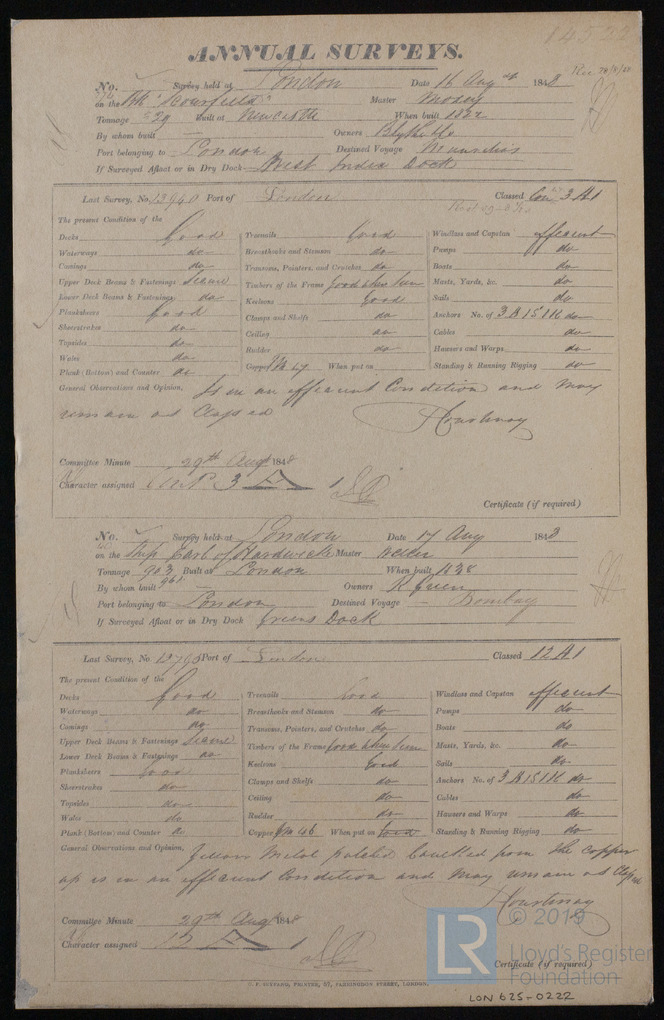 ANNUAL SURVEYS.
No. Survey held at London Date 16 Aug 1848
on the Bk Master
Tonnage 329 Built at Newcastle When built 1822
By whom built — Owners Blyth & Co
Port belonging to London Destined Voyage Mauritius
If Surveyed Afloat or in Dry Dock West India Dock
Last Survey, No. 13940 Port of London Classed 3 A1
The present Condition of the
Decks Good Treenails Good Windlass and Capstan efficient
Waterways do Breasthooks and Stemson do Pumps do
Comings do Transoms, Pointers, and Crutches do Boats do
Upper Deck Beams & Fastenings Seams Timbers of the Frame Good when seen Masts, Yards, &c. do
Lower Deck Beams & Fastenings do Keelsons Good Sails do
Planksheers Good Clamps and Shelfs do Anchors No. of 3 B 1 S 1 K do
Sheerstrakes do Ceiling do Cables do
Topsides do Rudder do Hawsers and Warps do
Wales do Copper 47 When put on Standing & Running Rigging do
Plank (Bottom) and Counter do
General Observations and Opinion, Is in an efficient Condition and may
remain as Classed
Courtenay
Committee Minute 29th Aug 1848
Character assigned 3 A 1
Certificate (if required)
No. Survey held at London Date 17 Aug 1848
on the Ship Earl of Hardwicke Master
Tonnage 903 Built at London When built 1838
961
By whom built — Owners R Green
Port belonging to London Destined Voyage Bombay
If Surveyed Afloat or in Dry Dock Greens Dock
Last Survey, No. 13795 Port of London Classed 12 A1
The present Condition of the
Decks Good Treenails Good Windlass and Capstan efficient
Waterways do Breasthooks and Stemson do Pumps do
Comings do Transoms, Pointers, and Crutches do Boats do
Upper Deck Beams & Fastenings Seams Timbers of the Frame Good when seen Masts, Yards, &c. do
Lower Deck Beams & Fastenings do Keelsons Good Sails do
Planksheers Good Clamps and Shelfs do Anchors No. of 3 B 1 S 1 K do
Sheerstrakes do Ceiling do Cables do
Topsides do Rudder do Hawsers and Warps do
Wales do Copper 46 When put on Good Standing & Running Rigging do
Plank (Bottom) and Counter do
General Observations and Opinion, Yellow Metal Caulked from the copper
up is in an efficient Condition and may remain as Classed
Courtenay
Committee Minute 29th Aug 1848
Character assigned 12 A 1
Certificate (if required)
LR © 2019
Lloyd's Register
Foundation
LON 625-0222